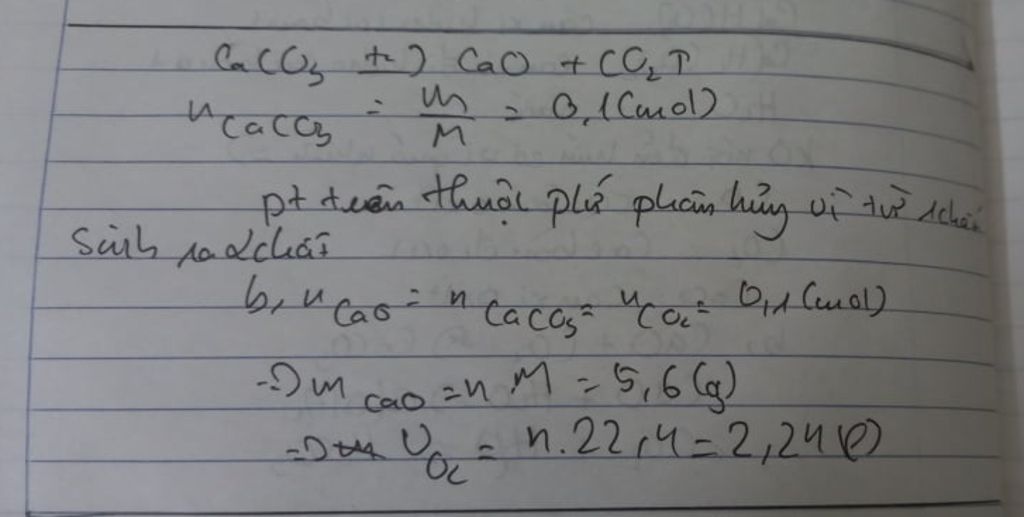 CaCO₃ t°→ CaO + CO₂↑
nCaCO₃ = m/M = 0,1 (mol)
pt trên thuộc pứ phân hủy vì từ 1 chất
sinh ra 2 chất
b, nCaO = nCaCO₃ = nCO₂ = 0,1 (mol)
=> mCaO = n.M = 5,6 (g)
=> VO₂ = n.22,4 = 2,24 (l)